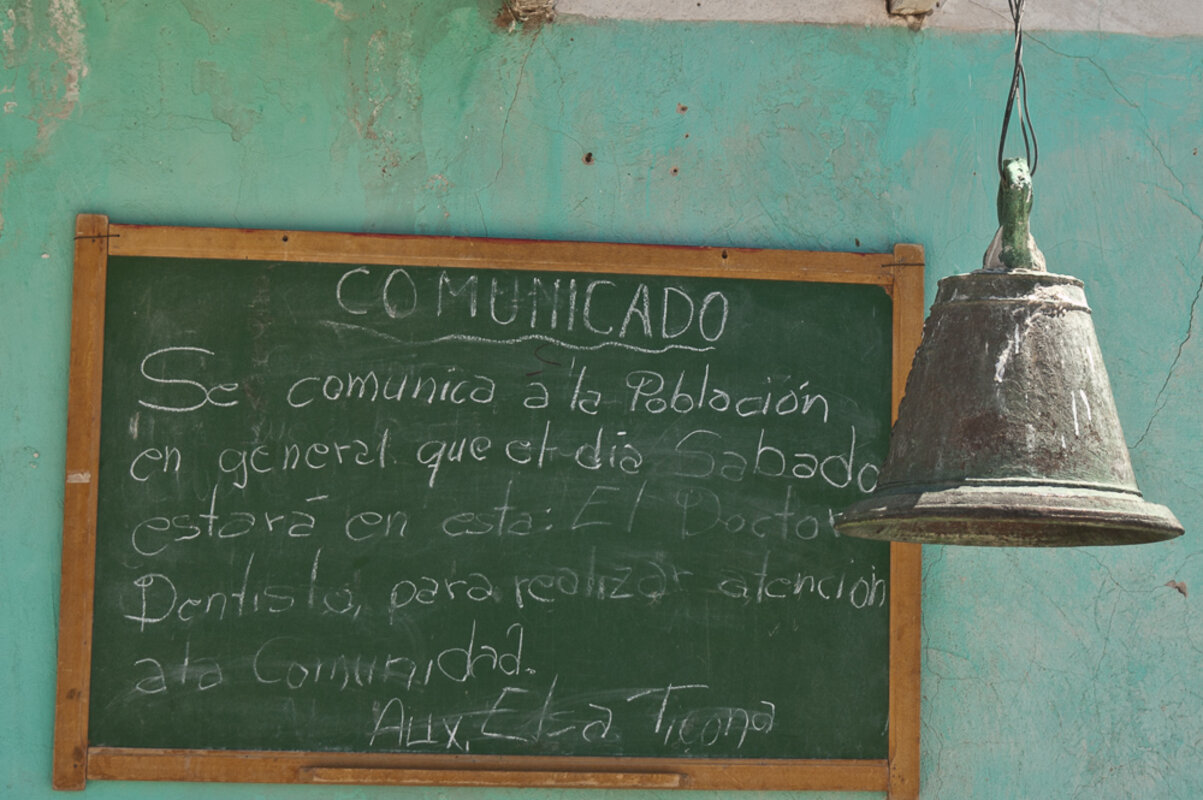 COMUNICADO
Se comunica a la Población
en general que el día Sabado
estará en esta: El Doctor
Dentista, para realizar atención
a la Comunidad.
Aux, Elsa Ticona